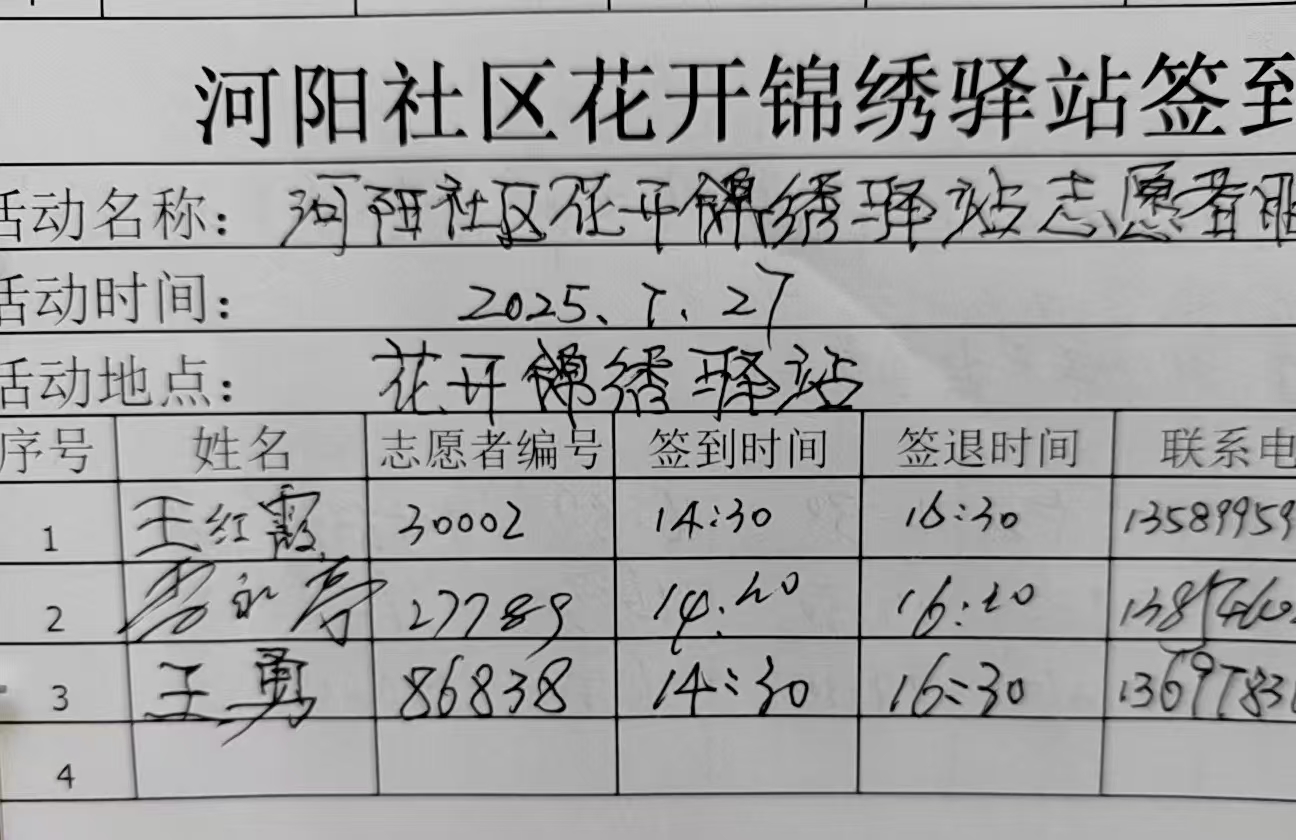 河阳社区花开锦绣驿站签到
活动名称：河阳社区花开锦绣驿站志愿者服
活动时间：2025.7.27
活动地点：花开锦绣驿站
序号 姓名 志愿者编号 签到时间 签退时间 联系电
1 王红霞 30002 14:30 16:30 13589959
2 27789 16:20
3 王勇 86838 14:30 16:30 1369783
4